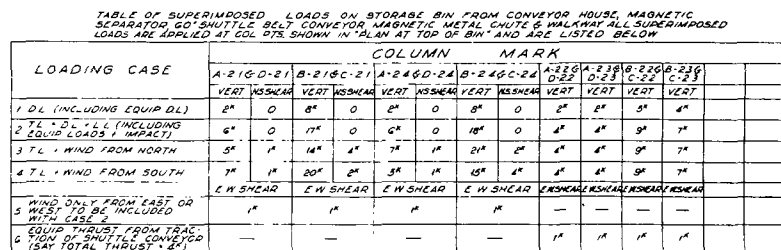 TABLE OF SUPERIMPOSED LOADS ON STORAGE BIN FROM CONVEYOR HOUSE, MAGNETIC
SEPARATOR, 60" SHUTTLE BELT CONVEYOR, MAGNETIC METAL CHUTE & WALKWAY ALL SUPERIMPOSED
LOADS ARE APPLIED AT COL PTS. SHOWN IN "PLAN AT TOP OF BIN" AND ARE LISTED BELOW
COLUMN MARK
LOADING CASE
A-21 & D-21 B-21 & C-21 A-24 & D-24 B-24 & C-24 A-22 & D-22 A-23 & D-23 B-22 & C-22 B-23 & C-23
VERT NS SHEAR VERT NS SHEAR VERT NS SHEAR VERT NS SHEAR VERT VERT VERT VERT
1 DL (INCLUDING EQUIP DL) 2K 0 8K 0 2K 0 8K 0 2K 2K 5K 4K
2 TL = DL + LL (INCLUDING EQUIP LOADS + IMPACT) 6K 0 17K 0 6K 0 18K 0 4K 4K 9K 7K
3 TL + WIND FROM NORTH 5K 1K 14K 4K 7K 1K 21K 2K 4K 4K 9K 7K
4 TL + WIND FROM SOUTH 7K 1K 20K 2K 5K 1K 15K 4K 4K 4K 9K 7K
E W SHEAR E W SHEAR E W SHEAR E W SHEAR E W SHEAR E W SHEAR E W SHEAR E W SHEAR
5 WIND ONLY FROM EAST OR WEST TO BE INCLUDED WITH CASE 2 1K 1K 1K 1K — — — —
6 EQUIP THRUST FROM TRACTION OF SHUTTLE CONVEYOR (SAY TOTAL THRUST = 4K) — — — — 1K 1K 1K 1K